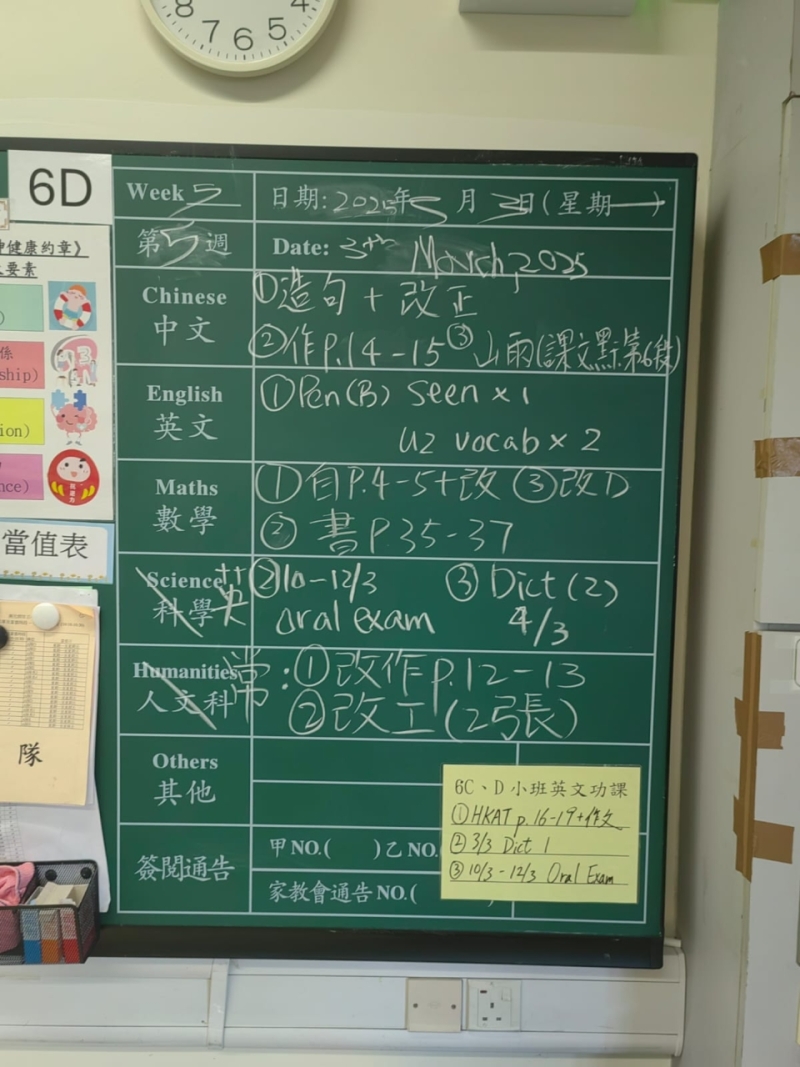 8 7 6 5 4
6D
Week 5
日期: 2025年3月3日(星期一)
第5週
Date: 3th March, 2025
健康約章》
要素
Chinese
中文
①造句 + 改正
②作P.14-15 ③山雨(課文點第6段)
係
ship)
English
英文
①Pen(B) seen x 1
U2 vocab x 2
ion)
Maths
數學
①自P.4-5+改 ③改D
② 書P.35-37
nce)
當值表
Science
科學
英
②10-12/3
oral exam
③ Dict (2)
4/3
Humanities
人文科
常:①改作p.12-13
②改工(2弓長)
隊
Others
其他
6C、D小班英文功課
①HKAT p.16-19+作文
② 3/3 Dict 1
③ 10/3-12/3 Oral Exam
簽閱通告
甲NO.( )乙NO.
家教會通告NO.(